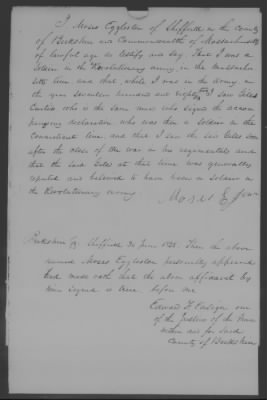 I Moses Eggleston of Sheffield in the county
of Berkshire and Commonwealth of Massachusetts
of lawful age do testify and say, that I was a
soldier in the Revolutionary army in the Massachu
setts line and that, while I was in the army in
the year seventeen hundred and eighty I saw Giles
Curtiss who is the same man who signed the accom
panying declaration who was then a soldier in the
Connecticut line, and that I saw the said Giles soon
after the close of the war in his regimentals and
that the said Giles at that time was generally
reputed and believed to have been a soldier in
the Revolutionary army
Moses
Berkshire Sheffield June Then the above
named Moses Eggleston personally appeared
and made oath that the above affidavit by
him signed is true before me
Edward F Ensign one
of the Justices of the Peace
within and for said
County of Berkshire